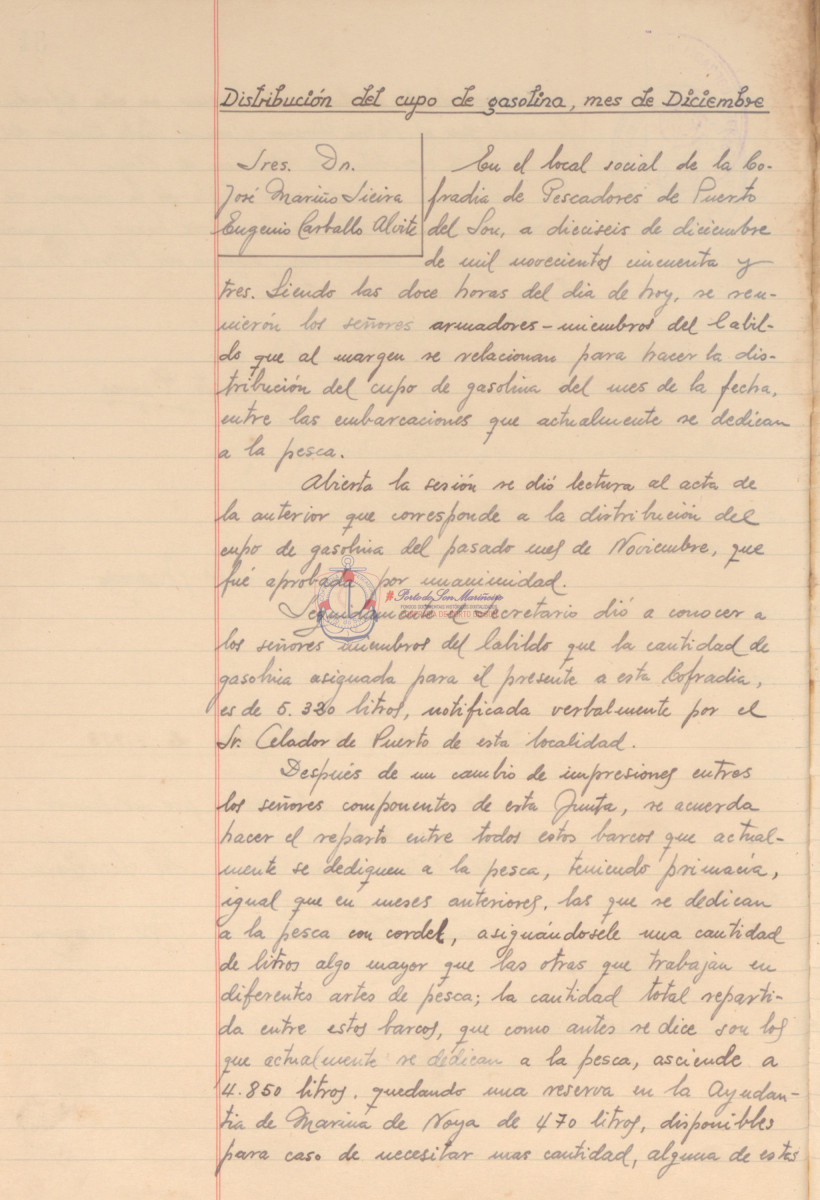 Distribución del cupo de gasolina, mes de Diciembre
Sres. Dn.
José Mariño Sieira
Eugenio Carballo Alvite
En el local social de la Co-
fradia de Pescadores de Puerto
del Son, a dieciseis de diciembre
de mil novecientos cincuenta y
tres. Siendo las doce horas del dia de hoy, se reu-
nierón los señores armadores-miembros del Cabil-
do que al margen se relacionan para hacer la dis-
tribución del cupo de gasolina del mes de la fecha,
entre las embarcaciones que actualmente se dedican
a la pesca.
Abierta la sesión se dió lectura al acta de
la anterior que corresponde a la distribución del
cupo de gasolina del pasado mes de Noviembre, que
fué aprobada por unanimidad.
Porto do Son Mariñeiro
Seguidamente el Secretario dió a conocer a
los señores miembros del Cabildo que la cantidad de
gasolina asignada para el presente a esta Cofradia,
es de 5.320 litros, notificada verbalmente por el
Sr. Celador de Puerto de esta localidad.
Después de un cambio de impresiones entres
los señores componentes de esta Junta, se acuerda
hacer el reparto entre todos estos barcos que actual-
mente se dediquen a la pesca, teniendo primacia,
igual que en meses anteriores, las que se dedican
a la pesca con cordel, asignándosele una cantidad
de litros algo mayor que las otras que trabajan en
diferentes artes de pesca; la cantidad total reparti-
da entre estos barcos, que como antes se dice son los
que actualmente se dedican a la pesca, asciende a
4.850 litros, quedando una reserva en la Ayudan-
tia de Marina de Noya de 470 litros, disponibles
para caso de necesitar mas cantidad, alguna de estas